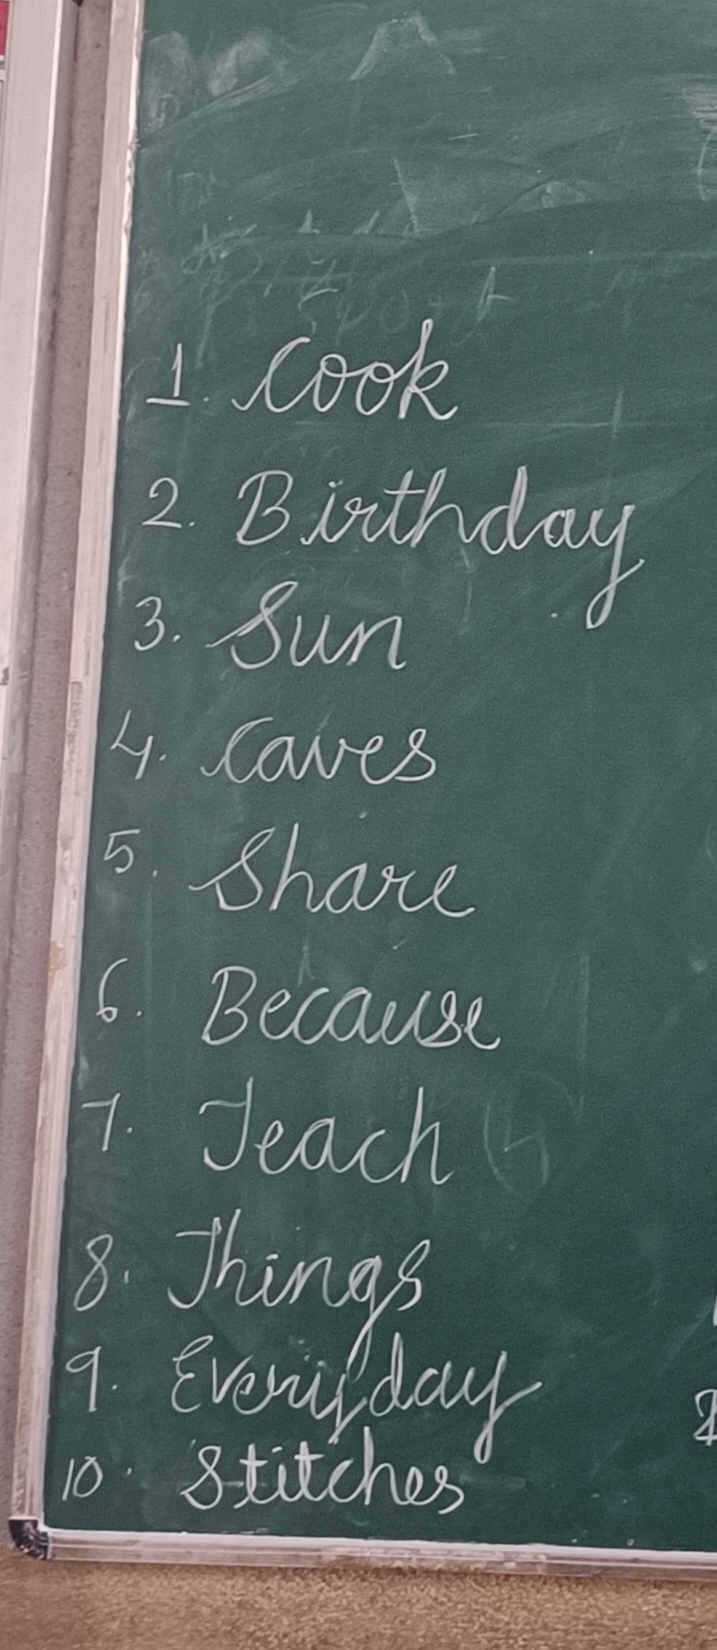 1. Cook
2. Birthday
3. Sun
4. Caves
5. Share
6. Because
7. Teach
8. Things
9. Everyday
10. Stitches